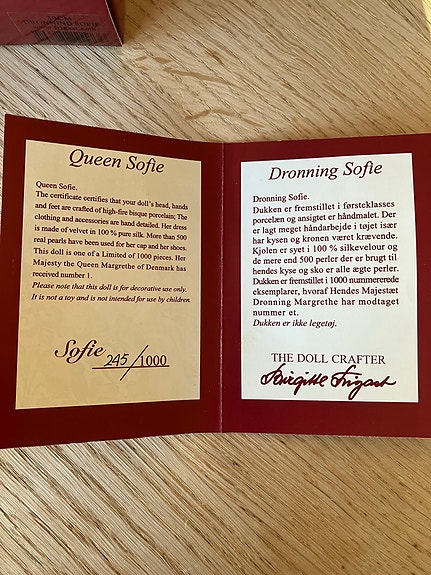 Queen Sofie
Queen Sofie.
The certificate certifies that your doll's head, hands
and feet are crafted of high-fire bisque porcelain; The
clothing and accessories are hand detailed. Her dress
is made of velvet in 100 % pure silk. More than 500
real pearls have been used for her cap and her shoes.
This doll is one of a Limited of 1000 pieces. Her
Majesty the Queen Margrethe of Denmark has
received number 1.
Please note that this doll is for decorative use only.
It is not a toy and is not intended for use by children.
Sofie 245/1000
Dronning Sofie
Dronning Sofie.
Dukken er fremstillet i førsteklasses
porcelæn og ansigtet er håndmalet. Der
er lagt meget håndarbejde i tøjet især
har kysen og kronen været krævende.
Kjolen er syet i 100 % silkevelour og
de mere end 500 perler der er brugt til
hendes kyse og sko er alle ægte perler.
Dukken er fremstillet i 1000 nummererede
eksemplarer, hvoraf Hendes Majestæt
Dronning Margrethe har modtaget
nummer et.
Dukken er ikke legetøj.
THE DOLL CRAFTER
Birgitte Frigast